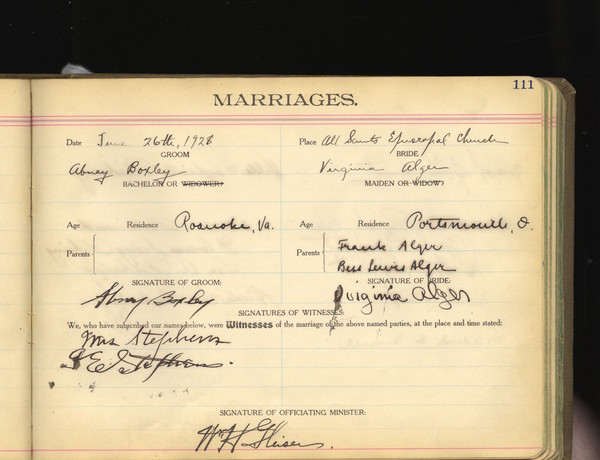 111
MARRIAGES.
Date June 26th, 1928 Place All Saints Episcopal Church
GROOM BRIDE
Abney Boxley Virginia Alger
BACHELOR OR WIDOWER MAIDEN OR WIDOW
Age Residence Roanoke, Va. Age Residence Portsmouth, O.
Parents Parents Frank Alger
Bess Lewis Alger
SIGNATURE OF GROOM: SIGNATURE OF BRIDE:
Abney Boxley Virginia Alger
SIGNATURES OF WITNESSES:
We, who have subscribed our names below, were Witnesses of the marriage of the above named parties, at the place and time stated:
Mrs Stephens
E Stephens.
SIGNATURE OF OFFICIATING MINISTER:
Wm H Gleiser.